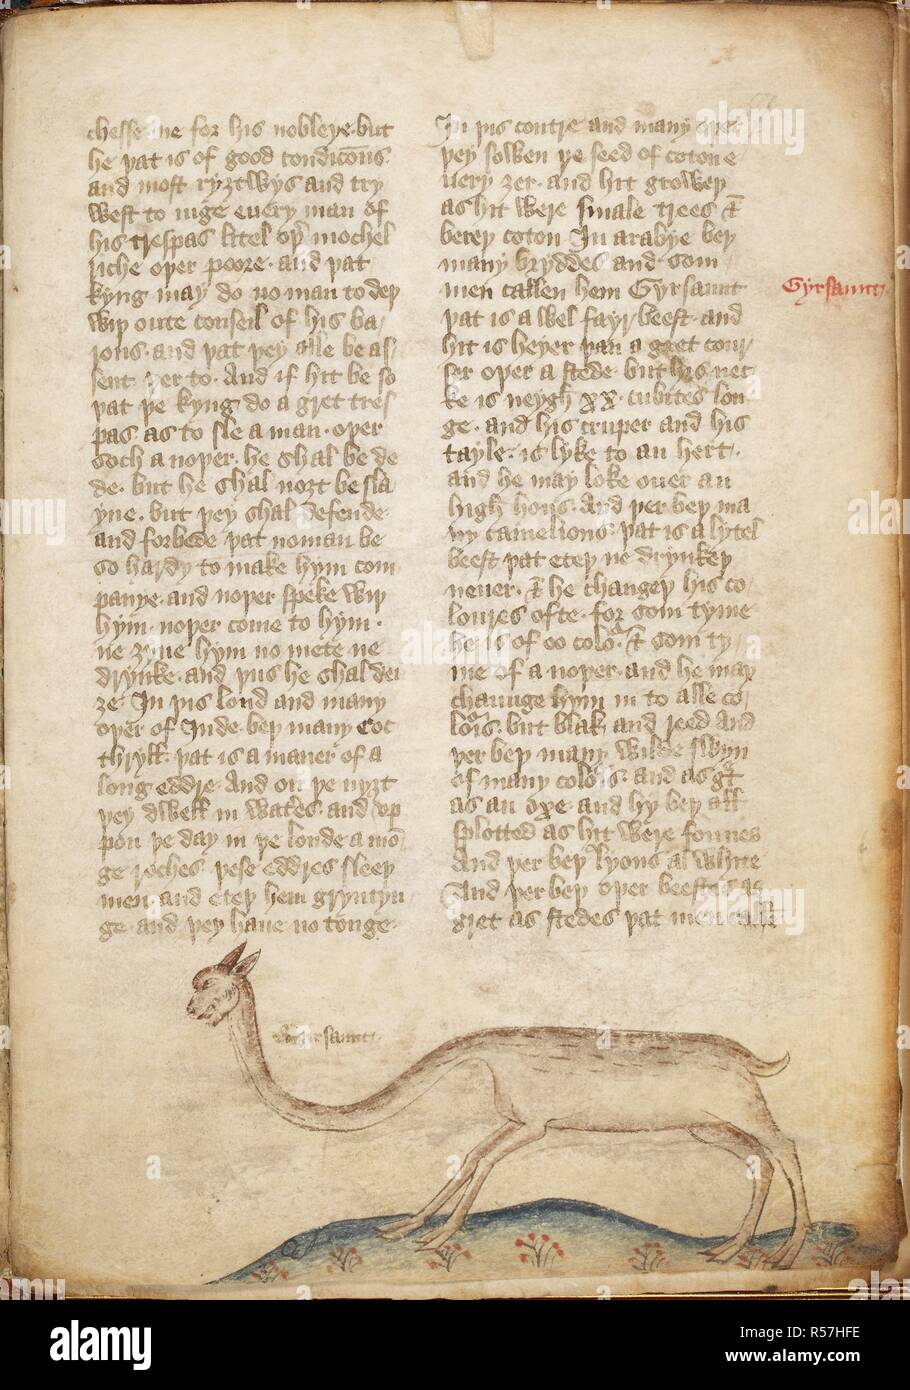 chesse me for his nobleye. but
he þat is of good condicoūs.
and most ryztwys and try
west to iuge euery man of
his trespas litel oþ' mochel
riche oþer poore. and þat
kyng may do no man to deþ
wiþ oute conseil of his ba/
rons. and þat þey alle be as/
sent þer to. And if hit be so
þat þe kyng do a gret tres
pas. as to sle a man. oþer
soch a noþer. he shal be de
de. but he shal nozt be sla
yne. but þey shal defende.
and forbede þat noman be
so hardy to make hym com
panye. and noþer speke wiþ
hym. noþer come to hym.
ne zyue hym no mete ne
drynke. and þus he shal dei
ze. In þis lond and many
oþer of Inde. beþ many Coc
thryll. þat is a maner of a
long eddre. And on þe nyzt
þey dwell in wates. and vp
pon þe day in þe londe a mō
ge roches. þese eddres sleeþ
men. and eteþ hem gryntyn
ge. and þey haue no tonge.
In þis contre and many oþer
þey sowen þe seed of cotone
euery zer. and hit groweþ
as hit were smale trees &
bereþ coton. In arabye beþ
many bryddes and som
men callen hem Gyrsaunt
þat is a wel fayr beest. and
hit is heyer þan a gret cour/
ser oþer a stede. but his nec
ke is neygh xx. cubites lon
ge. and his cruper and his
tayle. is lyke to an hert.
and he may loke ouer an
high hous. And þer beþ ma
ny camelions. þat is a lytel
beest þat eteþ ne drynkeþ
neuer. & he changeþ his co
loures ofte. for som tyme
he is of oo coloʳ. & som ty/
me of a noþer. and he may
chaunge hym in to alle co/
loʳs. but blak and reed. And
þer beþ many wilde swyn
of many coloʳs. and as gʳt
as an oxe. and hy beþ all
splotted as hit were founes
And þer beþ lyons al white
And þer beþ oþer beestes as
gret as stedes þat men call
Gyrsaunt.
Gyrsaunt.
alamy
Image ID: R57HFE
www.alamy.com